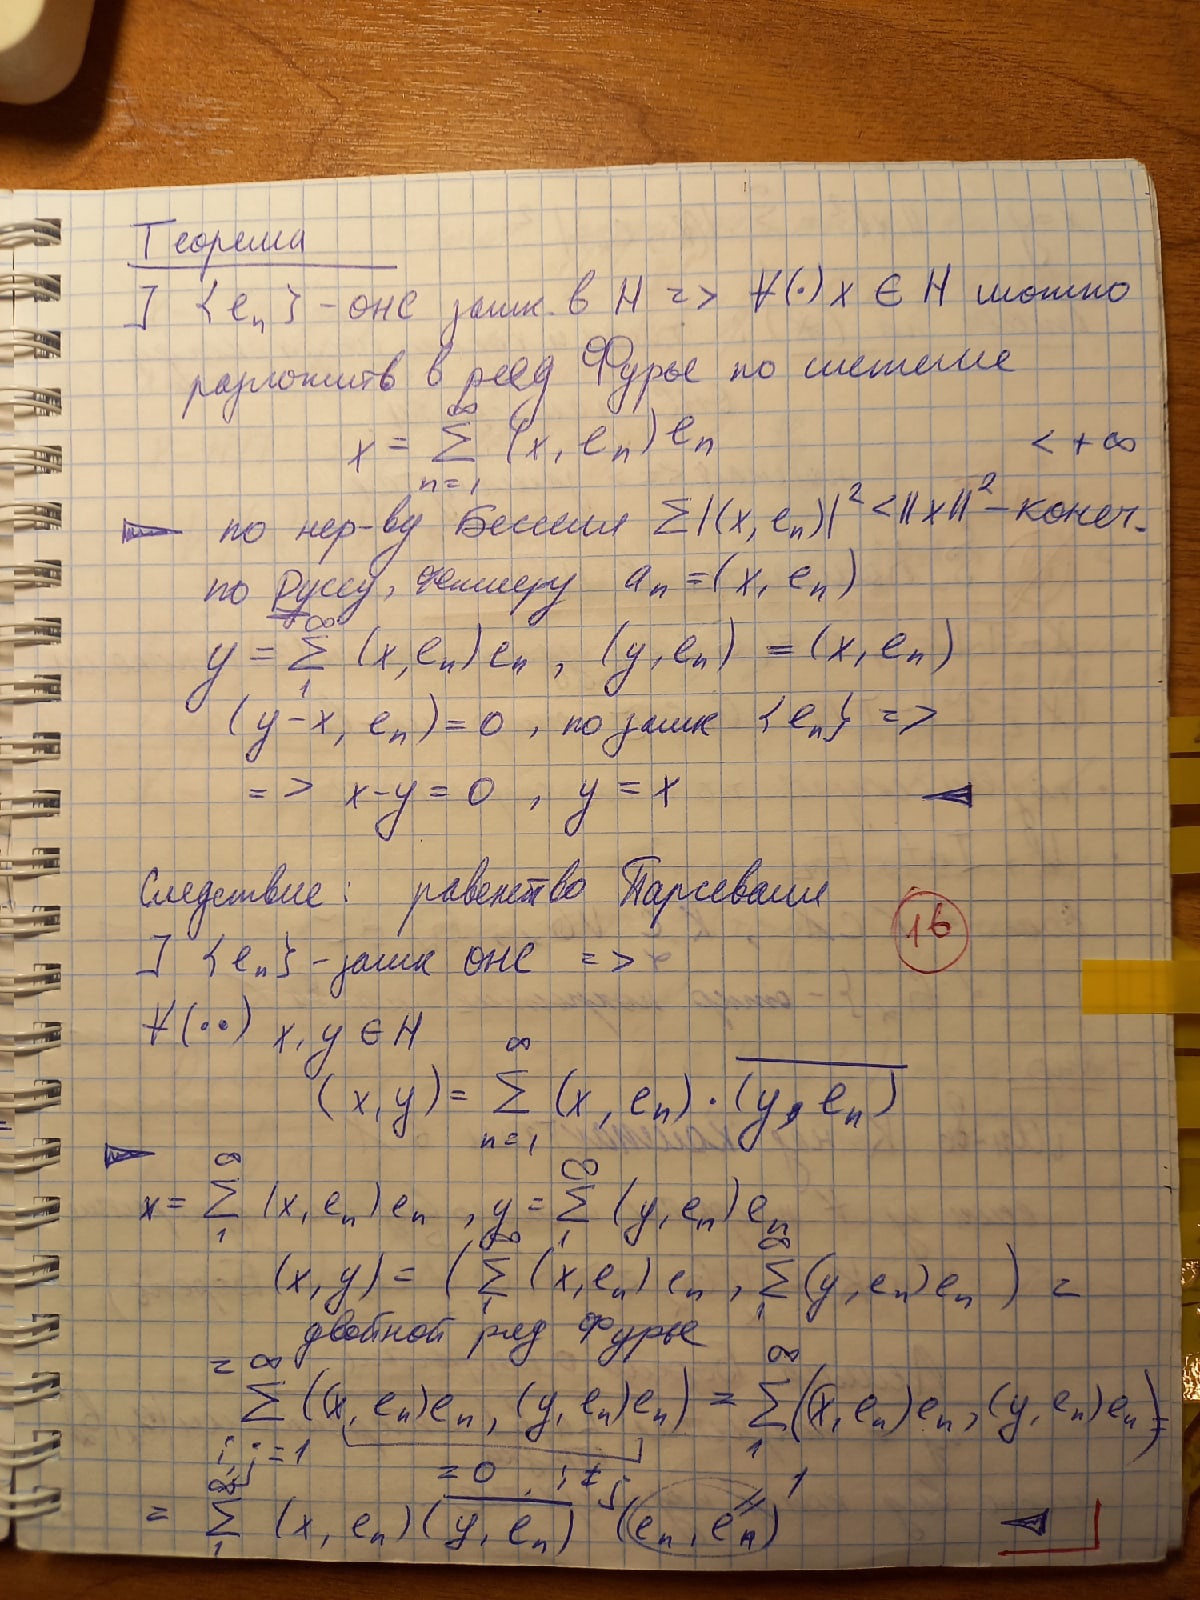 Теорема
] {eₙ} - онс замк. в H => ∀(·) x ∈ H можно
разложить в ряд Фурье по системе
x = ∑_{n=1}^{∞} (x, eₙ) eₙ
< +∞
по нер-ву Бесселя ∑|(x, eₙ)|² < ||x||² - конеч.
по Риссу, Фишеру aₙ = (x, eₙ)
y = ∑_{1}^{∞} (x, eₙ) eₙ , (y, eₙ) = (x, eₙ)
(y - x, eₙ) = 0 , по замк {eₙ} =>
=> x - y = 0 , y = x
Следствие: равенство Парсеваля
16
] {eₙ} - замк онс =>
∀(··) x, y ∈ H
(x, y) = ∑_{n=1}^{∞} (x, eₙ) · \overline{(y, eₙ)}
x = ∑_{1}^{∞} (x, eₙ) eₙ , y = ∑_{1}^{∞} (y, eₙ) eₙ
(x, y) = ( ∑_{1}^{∞} (x, eₙ) eₙ , ∑_{1}^{∞} (y, eₙ) eₙ ) =
двойной ряд Фурье
= ∑_{i,j=1}^{∞} ((x, eₙ) eₙ, (y, eₙ) eₙ) = ∑_{1}^{∞} ((x, eₙ) eₙ, (y, eₙ) eₙ) =
= 0 , i ≠ j
1
= ∑_{1}^{∞} (x, eₙ) \overline{(y, eₙ)} (eₙ, eₙ)